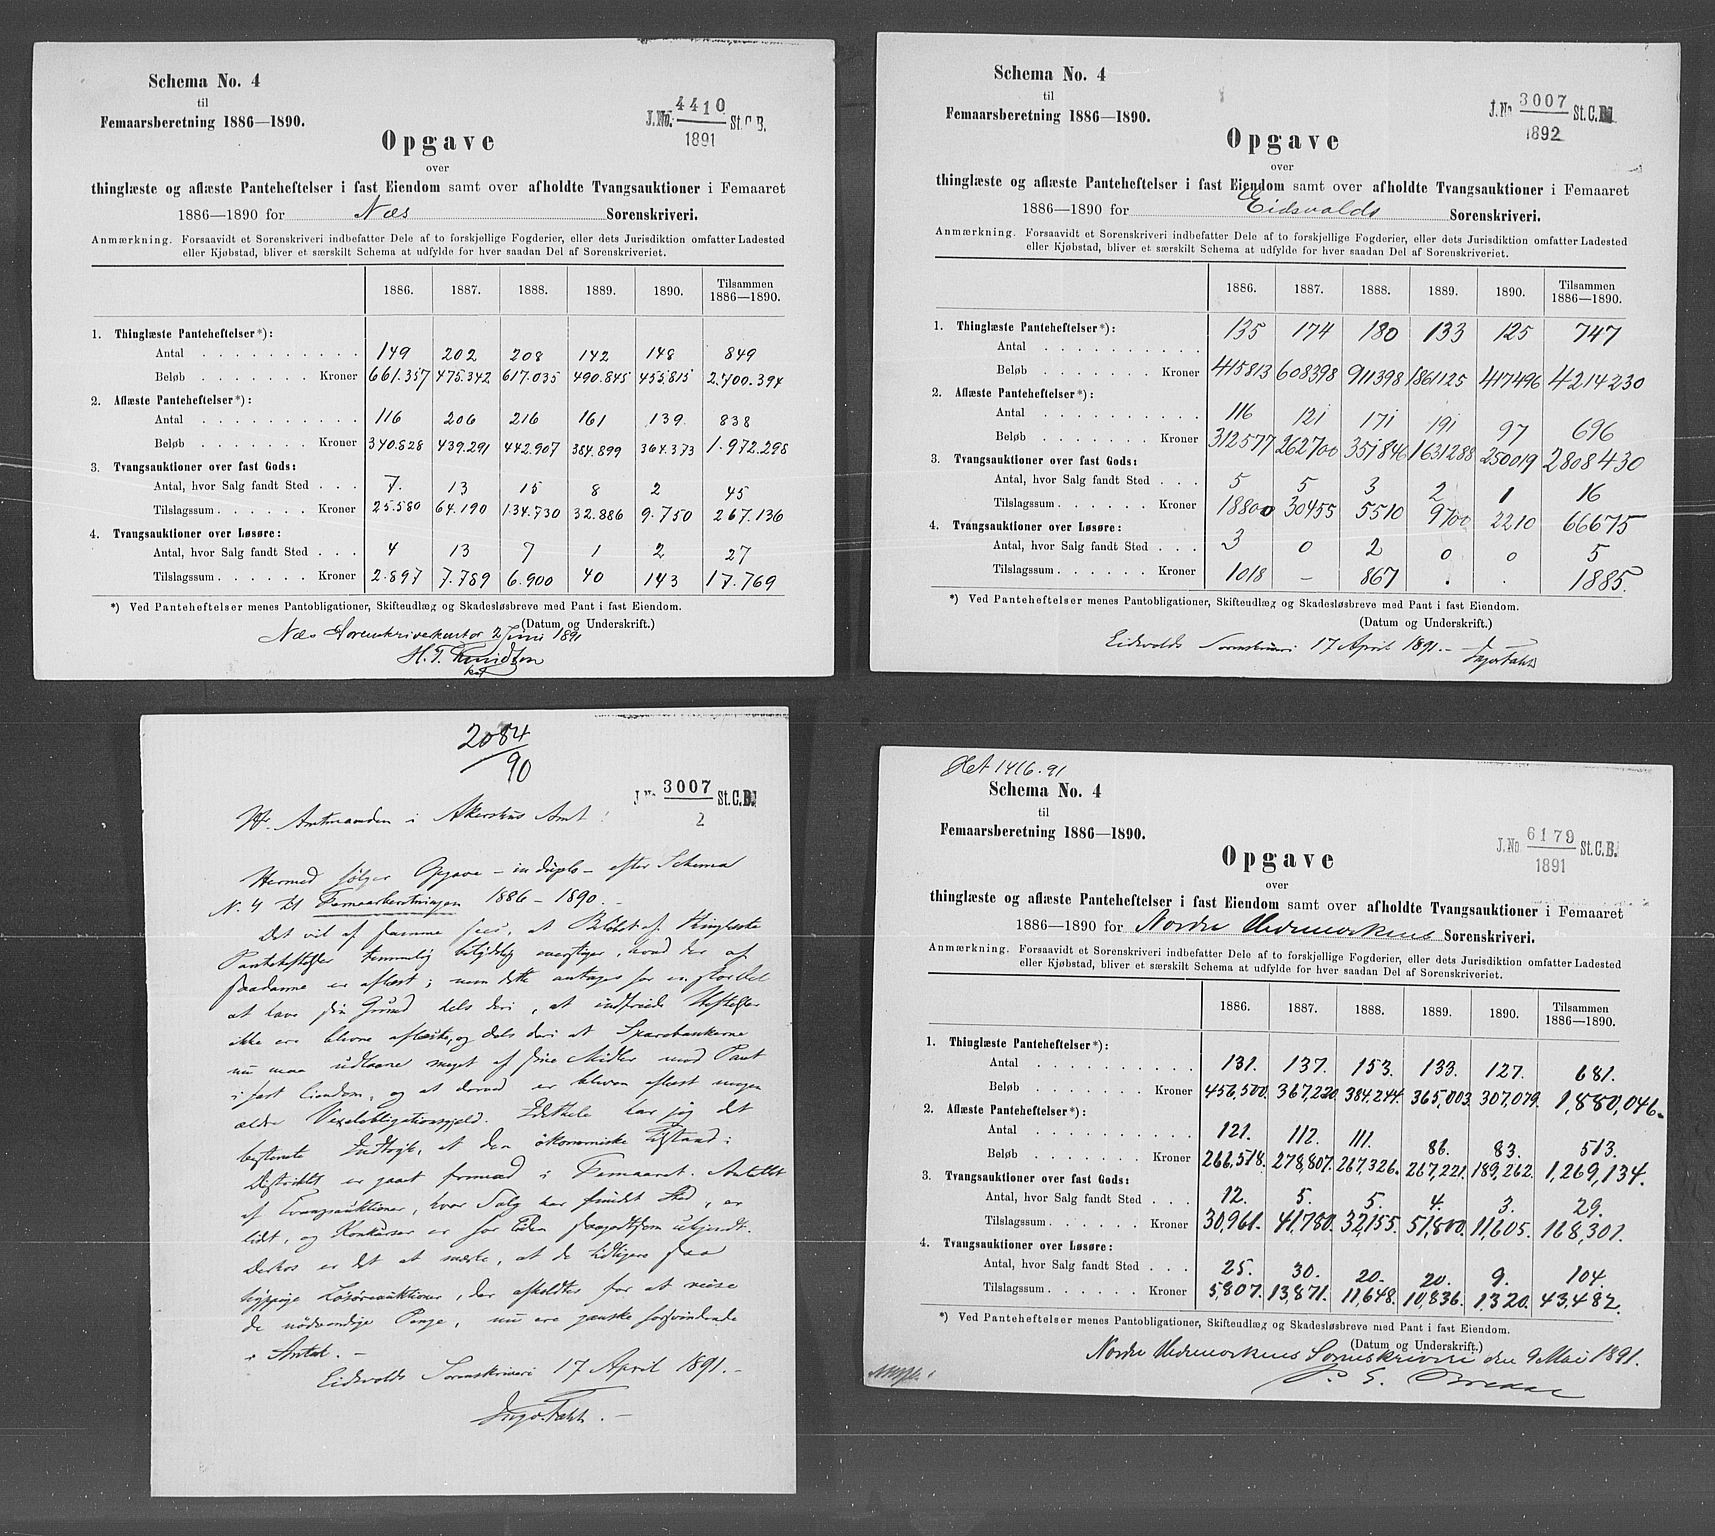 Schema No. 4
til
Femaarsberetning 1886—1890.
J. No. 4410 St. C. B.
1891
Opgave
over
thinglæste og aflæste Panteheftelser i fast Eiendom samt over afholdte Tvangsauktioner i Femaaret
1886—1890 for Næs Sorenskriveri.
Anmærkning. Forsaavidt et Sorenskriveri indbefatter Dele af to forskjellige Fogderier, eller dets Jurisdiktion omfatter Ladested
eller Kjøbstad, bliver et særskilt Schema at udfylde for hver saadan Del af Sorenskriveriet.
1886. 1887. 1888. 1889. 1890. Tilsammen 1886—1890.
1. Thinglæste Panteheftelser*):
Antal 149 202 208 142 148 849
Beløb Kroner 661.357 475.342 617.035 490.845 455.815 2.700.394
2. Aflæste Panteheftelser*):
Antal 116 206 216 161 139 838
Beløb Kroner 340.828 439.291 442.907 384.899 364.373 1.972.298
3. Tvangsauktioner over fast Gods:
Antal, hvor Salg fandt Sted 7. 13 15 8 2 45
Tilslagssum Kroner 25.580 64.190 134.730 32.886 9.750 267.136
4. Tvangsauktioner over Løsøre:
Antal, hvor Salg fandt Sted 4 13 7 1 2 27
Tilslagssum Kroner 2.897 7.789 6.900 40 143 17.769
*) Ved Panteheftelser menes Pantobligationer, Skifteudlæg og Skadesløsbreve med Pant i fast Eiendom.
(Datum og Underskrift.)
Næs Sorenskriverkontor 2 Juni 1891
H. T. Knudtzen
kst
Schema No. 4
til
Femaarsberetning 1886—1890.
J. No. 3007 St. C. B.
1892
Opgave
over
thinglæste og aflæste Panteheftelser i fast Eiendom samt over afholdte Tvangsauktioner i Femaaret
1886—1890 for Eidsvolds Sorenskriveri.
Anmærkning. Forsaavidt et Sorenskriveri indbefatter Dele af to forskjellige Fogderier, eller dets Jurisdiktion omfatter Ladested
eller Kjøbstad, bliver et særskilt Schema at udfylde for hver saadan Del af Sorenskriveriet.
1886. 1887. 1888. 1889. 1890. Tilsammen 1886—1890.
1. Thinglæste Panteheftelser*):
Antal 135 174 180 133 125 747
Beløb Kroner 415813 608398 911398 1861125 417496 4214230
2. Aflæste Panteheftelser*):
Antal 116 121 171 191 97 696
Beløb Kroner 312577 262700 351846 1631288 250019 2808430
3. Tvangsauktioner over fast Gods:
Antal, hvor Salg fandt Sted 5 5 3 2 1 16
Tilslagssum Kroner 18800 30455 5510 9700 2210 66675
4. Tvangsauktioner over Løsøre:
Antal, hvor Salg fandt Sted 3 0 2 0 0 5
Tilslagssum Kroner 1018 — 867 . . 1885.
*) Ved Panteheftelser menes Pantobligationer, Skifteudlæg og Skadesløsbreve med Pant i fast Eiendom.
(Datum og Underskrift.)
Eidsvolds Sorenskriveri 17 April 1891. —
2084
90
J. No. 3007 St. C. B.
2
Hr. Amtmanden i Akershus Amt!
Hermed følger Opgave — in duplo — efter Schema
N. 4 til Femaarsberetningen 1886 — 1890. —
Det vil af samme sees, at Beløbet af thinglæste
Panteheftelser temmelig betydelig overstiger, hvad der af
saadanne er aflæst; men dette antages for en stor Del
at have sin Grund dels deri, at indfriede Heftelser
ikke ere blevne aflæste, og dels deri at Sparebankerne
nu maa udlaane meget af sine Midler mod Pant
i fast Eiendom, og at derved er bleven aflæst megen
ældre Vexelobligationsgjeld. Idethele har jeg det
bestemte Indtryk, at den økonomiske Tilstand i
Distriktet er gaaet fremad i Femaaret. Antallet
af Tvangsauktioner, hvor Salg har fundet Sted, er
lidet, og Konkurser er for Tiden saagodtsom ukjendt.
Derhos er det at mærke, at de tidligere saa
hyppige Løsøreauktioner, der afholdtes for at reise
de nødvendige Penge, nu ere ganske forsvindende
i Antal. —
Eidsvolds Sorenskriveri 17 April 1891. —
Het 1416. 91
Schema No. 4
til
Femaarsberetning 1886—1890.
J. No. 6179 St. C. B.
1891
Opgave
over
thinglæste og aflæste Panteheftelser i fast Eiendom samt over afholdte Tvangsauktioner i Femaaret
1886—1890 for Nordre Hedemarkens Sorenskriveri.
Anmærkning. Forsaavidt et Sorenskriveri indbefatter Dele af to forskjellige Fogderier, eller dets Jurisdiktion omfatter Ladested
eller Kjøbstad, bliver et særskilt Schema at udfylde for hver saadan Del af Sorenskriveriet.
1886. 1887. 1888. 1889. 1890. Tilsammen 1886—1890.
1. Thinglæste Panteheftelser*):
Antal 131. 137. 153. 133. 127. 681.
Beløb Kroner 456,500. 367,220. 384,244. 365,003. 307,079. 1,880,046.
2. Aflæste Panteheftelser*):
Antal 121. 112. 111. 86. 83. 513.
Beløb Kroner 266,518. 278,807. 267,326. 267,221. 189,262. 1,269,134.
3. Tvangsauktioner over fast Gods:
Antal, hvor Salg fandt Sted 12. 5. 5. 4. 3. 29.
Tilslagssum Kroner 30,961. 41,780. 32,155. 51,800. 11,605. 168,301.
4. Tvangsauktioner over Løsøre:
Antal, hvor Salg fandt Sted 25. 30. 20. 20. 9. 104.
Tilslagssum Kroner 5,807. 13,871. 11,648. 10,836. 1320. 43,482.
*) Ved Panteheftelser menes Pantobligationer, Skifteudlæg og Skadesløsbreve med Pant i fast Eiendom.
(Datum og Underskrift.)
Nordre Hedemarkens Sorenskriveri den 9 Mai 1891.